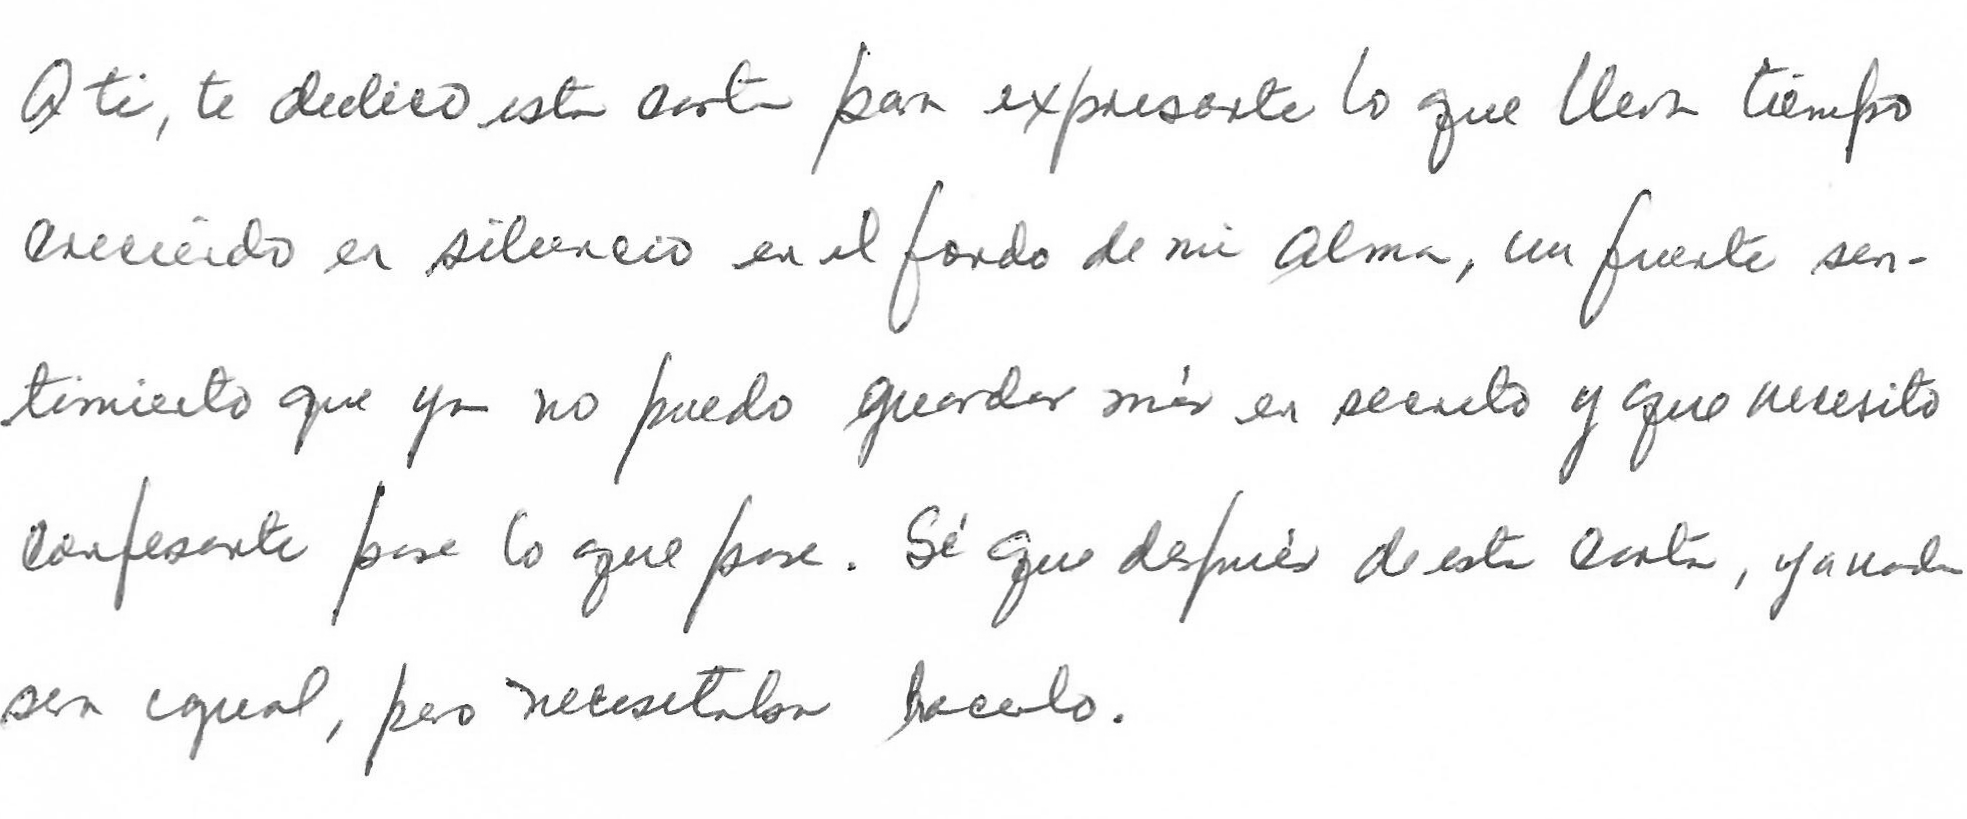 A ti, te dedico esta carta para expresarte lo que lleva tiempo
creciendo en silencio en el fondo de mi alma, un fuerte sen-
timiento que ya no puedo guardar más en secreto y que necesito
confesarte pase lo que pase. Sé que después de esta carta, ya nada
sera igual, pero necesitaba hacerlo.